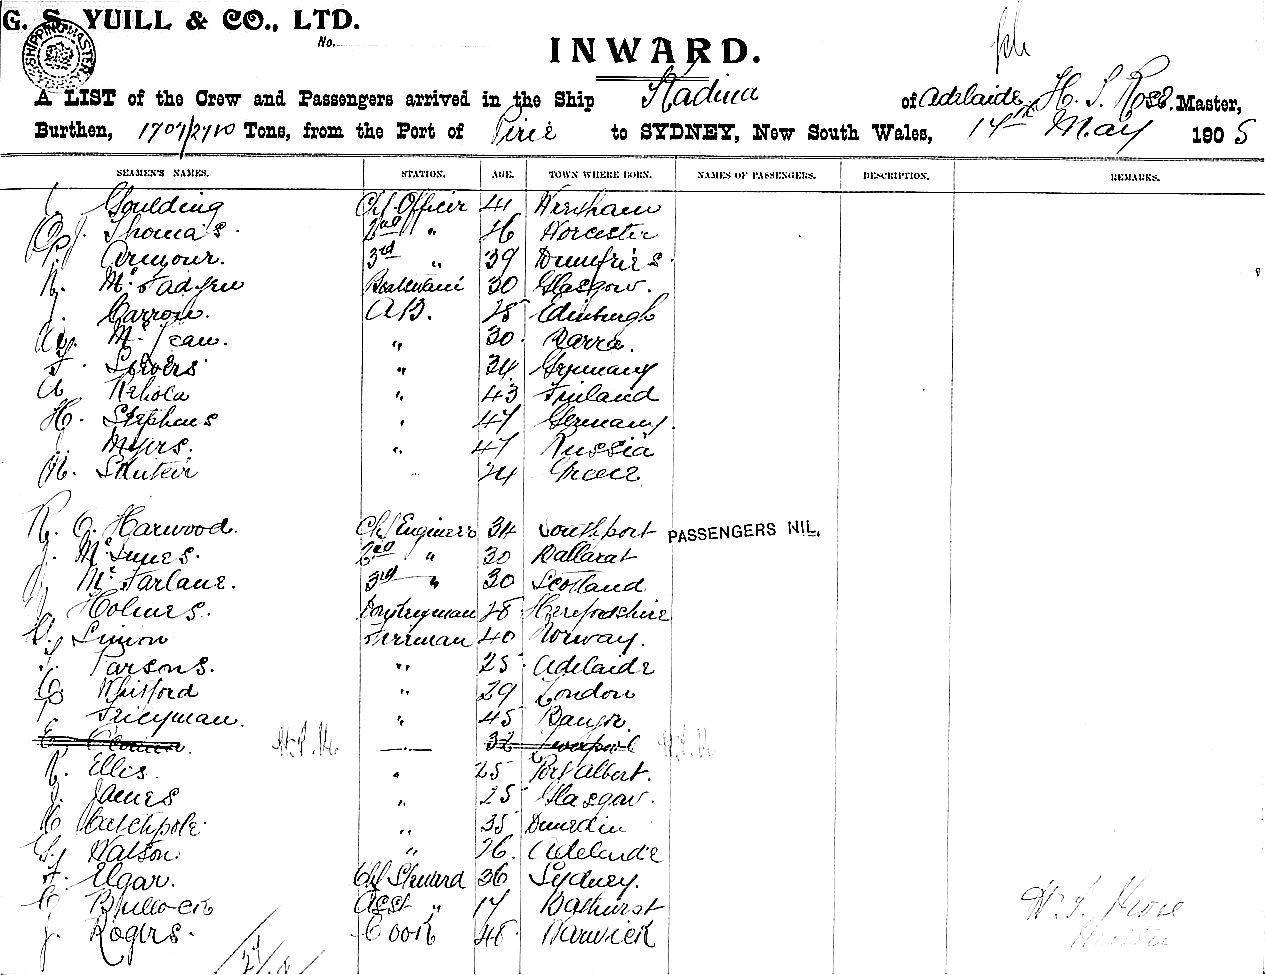 G. S. YUILL & CO., LTD.
No.
SHIPPING MASTER
INWARD.
A LIST of the Crew and Passengers arrived in the Ship Kadina of Adelaide, H. S. Rose Master,
Burthen, Tons, from the Port of Pirie to SYDNEY, New South Wales, 14th May 1905
SEAMEN'S NAMES. STATION. AGE. TOWN WHERE BORN. NAMES OF PASSENGERS. DESCRIPTION. REMARKS.
Goulding Chf Officer 41 Wrexham
J. Thomas 2nd " 26 Worcester
Armour. 3rd " 39 Dumfries.
Mc Fadyen Boatswain 30 Glasgow.
Carron. A.B. 25 Edinburgh
Mc Lean. " 30. Barra.
F. Sievers " 34 Germany
A Rehola " 43 Finland
H. Stephens " 47 Germany.
Myers. " 47 Russia
24 Greece
R. O. Harwood. Chf Engineer 34 Southport PASSENGERS NIL.
J. McInnes. 2nd " 30 Ballarat
J. McFarlane. 3rd " 30 Scotland
J. Holmes. Donkeyman 28 Herefordshire
Simon Fireman 40 Norway.
Parsons. " 25 Adelaide
C Whitford " 29 London
Freeyman. " 45 Bangor.
32 Liverpool
R. Ellis. " 25 Port Albert.
J. James " 25 Glasgow.
C Catchpole. " 35 Dunedin
G. Watson. " 26. Adelaide
F. Elgar. Chf Steward 36 Sydney.
C Bullock Asst " 17 Bathurst
J. Rogers. Cook 48 Warwick
H. S. Rose
Master